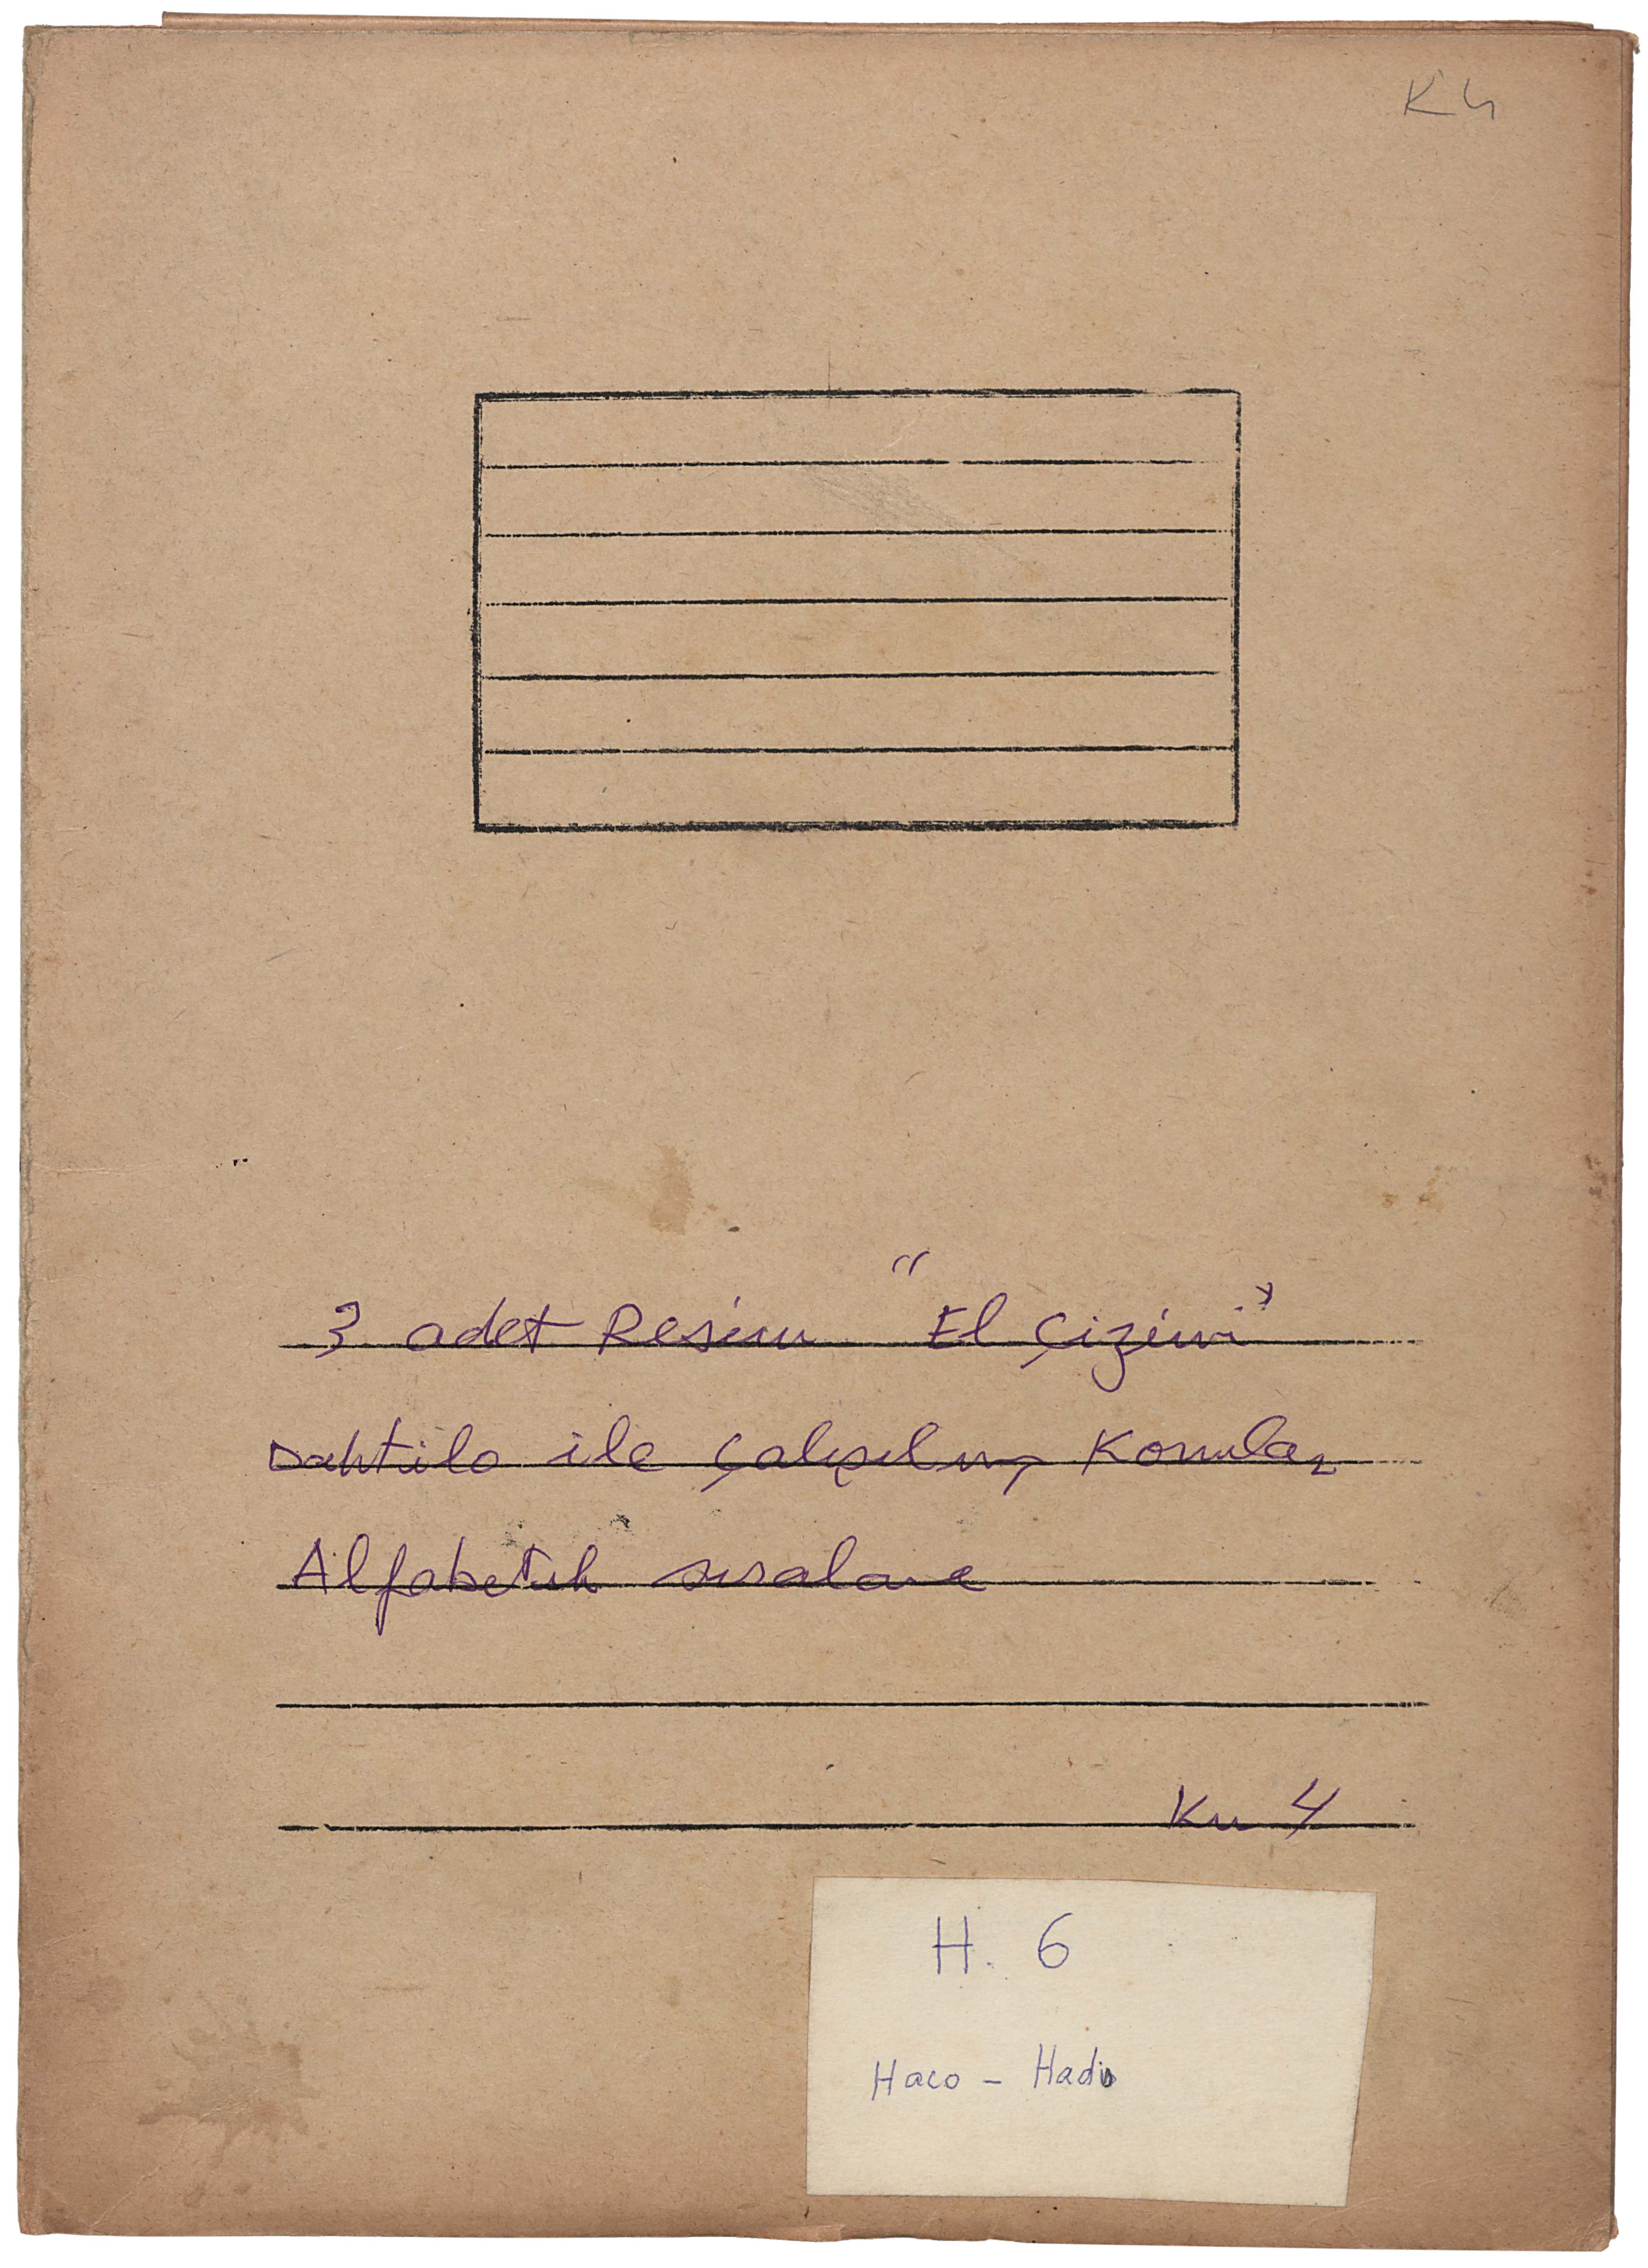 K4
3 adet Resim "El Çizimi"
Daktilo ile çalışılmış Konular
Alfabetik sıralama
Ku 4
H. 6
Haco - Hadi